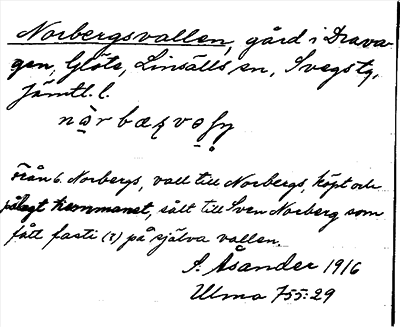 Norbergsvallen, gård i Drava-
gen, Glöte, Linsälls sn, Svegs tg,
Jämtl. l.
Från b. Norbergs, vall till Norbergs, köpt och
pålagt hemmanet, sålt till Sven Norberg som
fått fasti (?) på själva vallen.
S. Åsander 1916
Ulma 755:29